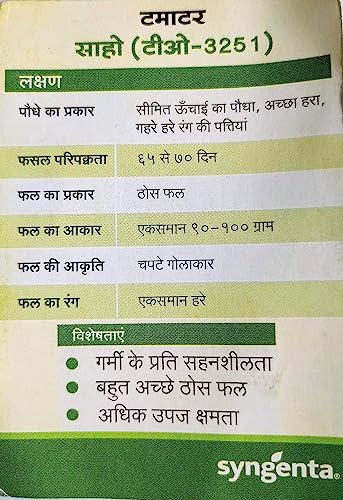 टमाटर
साहो (टीओ-3251)
लक्षण
पौधे का प्रकार सीमित ऊँचाई का पौधा, अच्छा हरा,
गहरे हरे रंग की पत्तियां
फसल परिपक्वता ६५ से ७० दिन
फल का प्रकार ठोस फल
फल का आकार एकसमान ९०-१०० ग्राम
फल की आकृति चपटे गोलाकार
फल का रंग एकसमान हरे
विशेषताएं
• गर्मी के प्रति सहनशीलता
• बहुत अच्छे ठोस फल
• अधिक उपज क्षमता
syngenta®